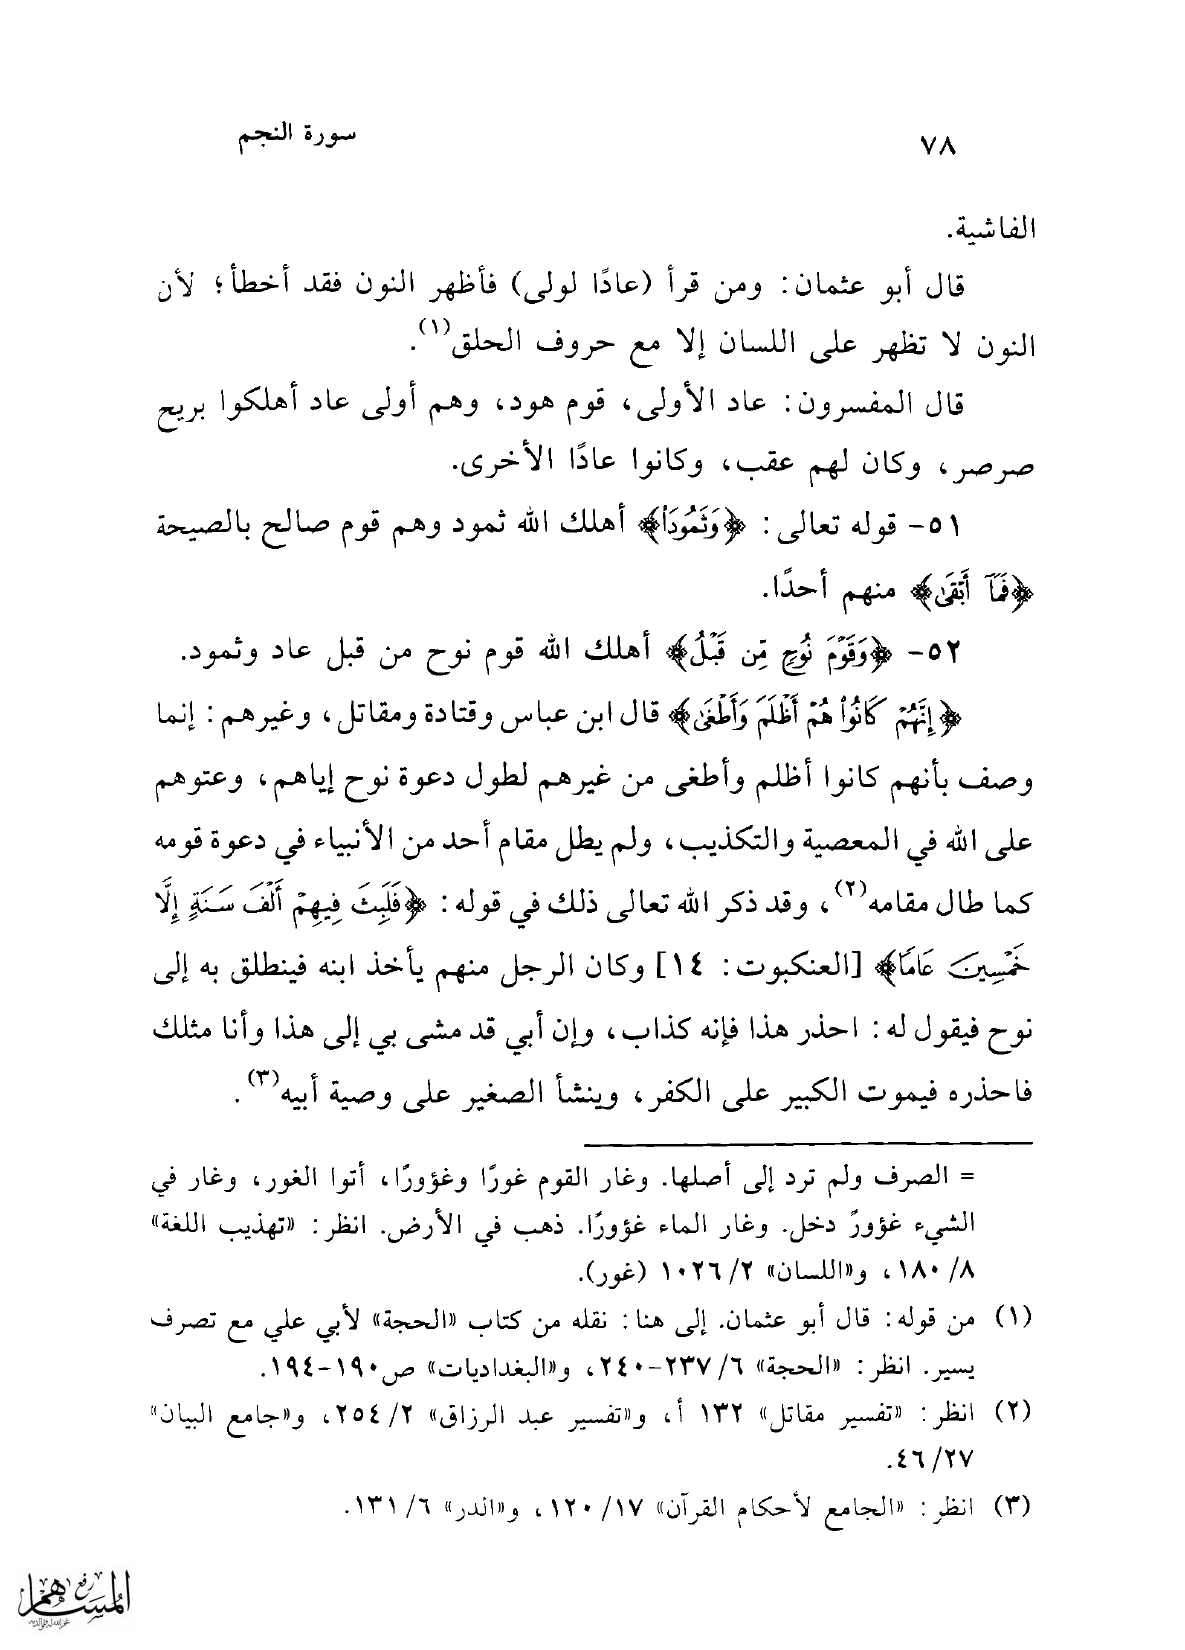 ٧٨
سورة النجم
الفاشية.
قال أبو عثمان: ومن قرأ (عادًا لولى) فأظهر النون فقد أخطأ؛ لأن
النون لا تظهر على اللسان إلا مع حروف الحلق(١).
قال المفسرون: عاد الأولى، قوم هود، وهم أولى عاد أهلكوا بريح
صرصر، وكان لهم عقب، وكانوا عادًا الأخرى.
٥١- قوله تعالى: ﴿وَثَمُودَا۟﴾ أهلك الله ثمود وهم قوم صالح بالصيحة
﴿فَمَآ أَبْقَىٰ﴾ منهم أحدًا.
٥٢- ﴿وَقَوْمَ نُوحٍ مِّن قَبْلُ﴾ أهلك الله قوم نوح من قبل عاد وثمود.
﴿إِنَّهُمْ كَانُوا۟ هُمْ أَظْلَمَ وَأَطْغَىٰ﴾ قال ابن عباس وقتادة ومقاتل، وغيرهم: إنما
وصف بأنهم كانوا أظلم وأطغى من غيرهم لطول دعوة نوح إياهم، وعتوهم
على الله في المعصية والتكذيب، ولم يطل مقام أحد من الأنبياء في دعوة قومه
كما طال مقامه(٢)، وقد ذكر الله تعالى ذلك في قوله: ﴿فَلَبِثَ فِيهِمْ أَلْفَ سَنَةٍ إِلَّا
خَمْسِينَ عَامًا﴾ [العنكبوت: ١٤] وكان الرجل منهم يأخذ ابنه فينطلق به إلى
نوح فيقول له: احذر هذا فإنه كذاب، وإن أبي قد مشى بي إلى هذا وأنا مثلك
فاحذره فيموت الكبير على الكفر، وينشأ الصغير على وصية أبيه(٣).
= الصرف ولم ترد إلى أصلها. وغار القوم غورًا وغؤورًا، أتوا الغور، وغار في
الشيء غؤورً دخل. وغار الماء غؤورًا. ذهب في الأرض. انظر: «تهذيب اللغة»
٨/ ١٨٠، و«اللسان» ٢/ ١٠٢٦ (غور).
(١) من قوله: قال أبو عثمان. إلى هنا: نقله من كتاب «الحجة» لأبي علي مع تصرف
يسير. انظر: «الحجة» ٦/ ٢٣٧-٢٤٠، و«البغداديات» ص١٩٠-١٩٤.
(٢) انظر: «تفسير مقاتل» ١٣٢ أ، و«تفسير عبد الرزاق» ٢/ ٢٥٤، و«جامع البيان»
٢٧/ ٤٦.
(٣) انظر: «الجامع لأحكام القرآن» ١٧/ ١٢٠، و«الدر» ٦/ ١٣١.
رفع
المساهم